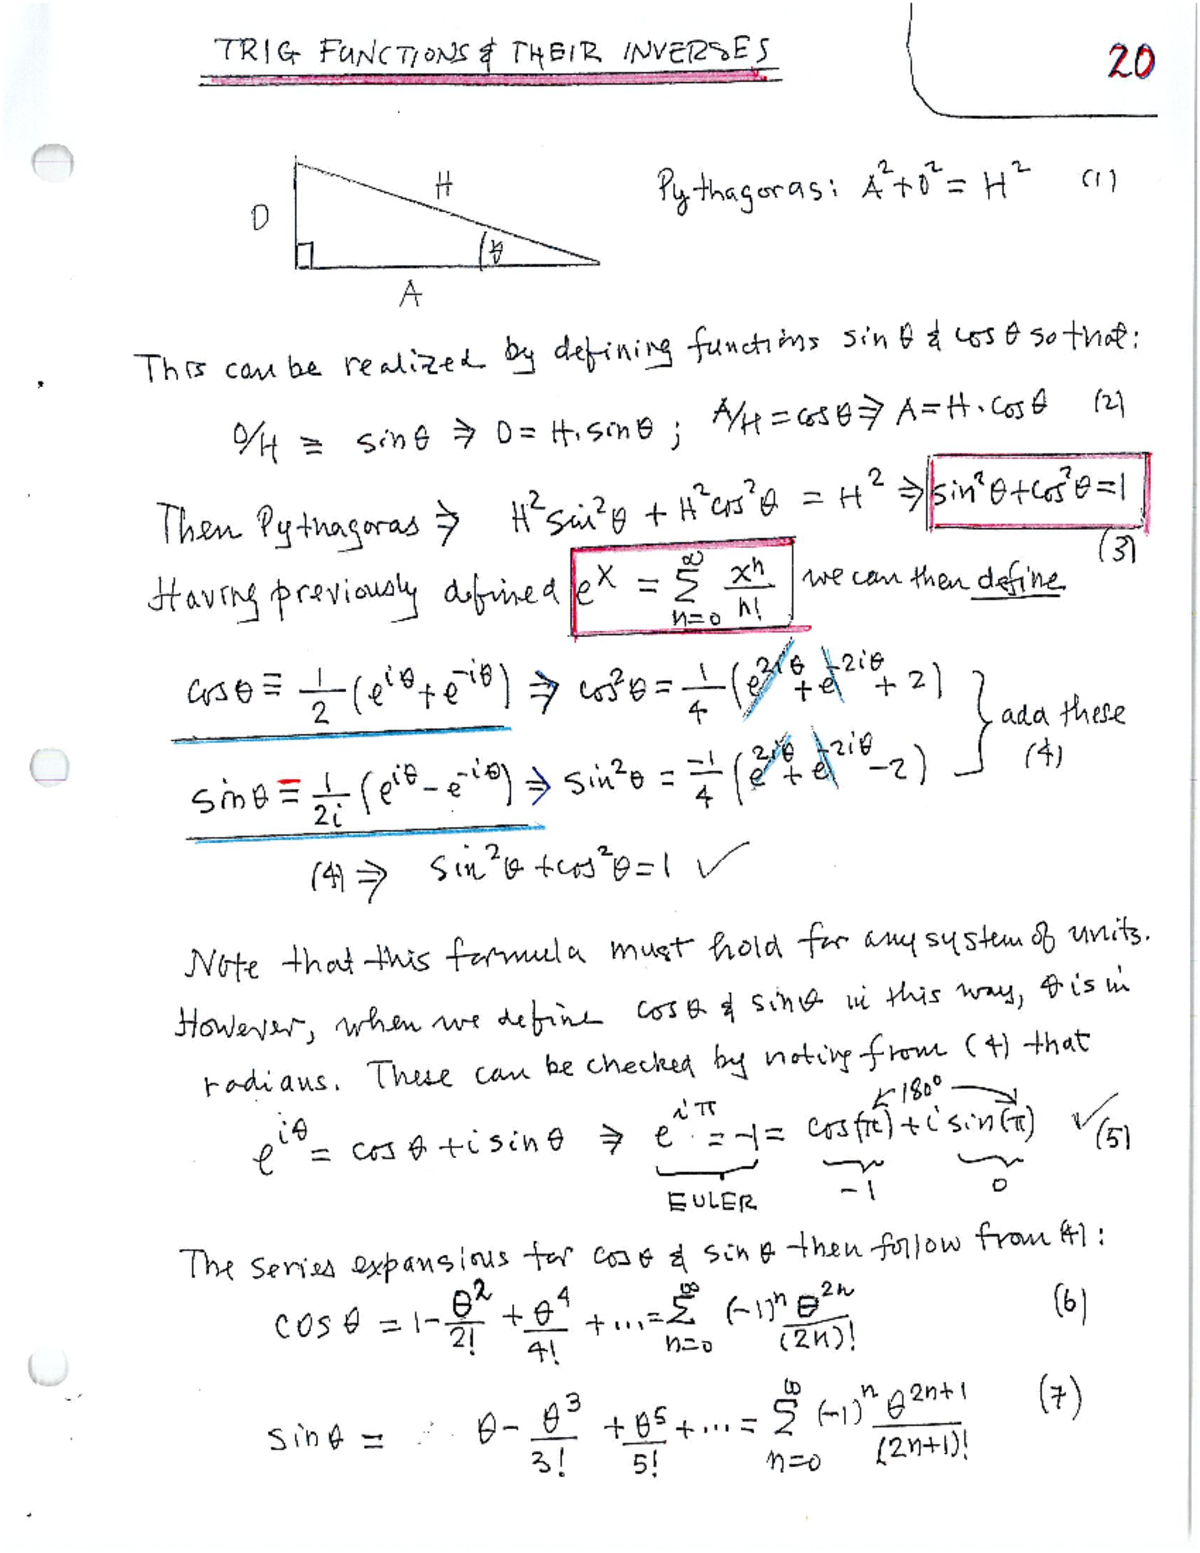 TRIG FUNCTIONS & THEIR INVERSES
20
H
O
θ
A
Pythagoras: A² + O² = H² (1)
This can be realized by defining functions sin θ & cos θ so that:
O/H ≡ sin θ ⇒ O = H · sin θ ; A/H = cos θ ⇒ A = H · cos θ (2)
Then Pythagoras ⇒ H² sin² θ + H² cos² θ = H² ⇒ sin² θ + cos² θ = 1
(3)
Having previously defined e^x = Σ_{n=0}^{∞} x^n / n! we can then define
cos θ ≡ 1/2 (e^{iθ} + e^{-iθ}) ⇒ cos² θ = 1/4 (e^{2iθ} + e^{-2iθ} + 2)
add these
(4)
sin θ ≡ 1/2i (e^{iθ} - e^{-iθ}) ⇒ sin² θ = -1/4 (e^{2iθ} + e^{-2iθ} - 2)
(4) ⇒ sin² θ + cos² θ = 1 ✓
Note that this formula must hold for any system of units.
However, when we define cos θ & sin θ in this way, θ is in
radians. These can be checked by noting from (4) that
180°
e^{iθ} = cos θ + i sin θ ⇒ e^{iπ} = -1 = cos(π) + i sin(π) ✓ (5)
EULER -1 0
The series expansions for cos θ & sin θ then follow from (4):
cos θ = 1 - θ²/2! + θ⁴/4! + ... = Σ_{n=0}^{∞} (-1)^n θ^{2n} / (2n)! (6)
sin θ = θ - θ³/3! + θ⁵/5! + ... = Σ_{n=0}^{∞} (-1)^n θ^{2n+1} / (2n+1)! (7)